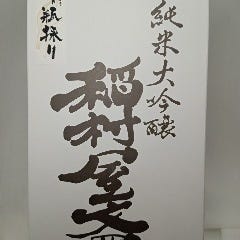 純米大吟醸
稲村屋文
瓶採り